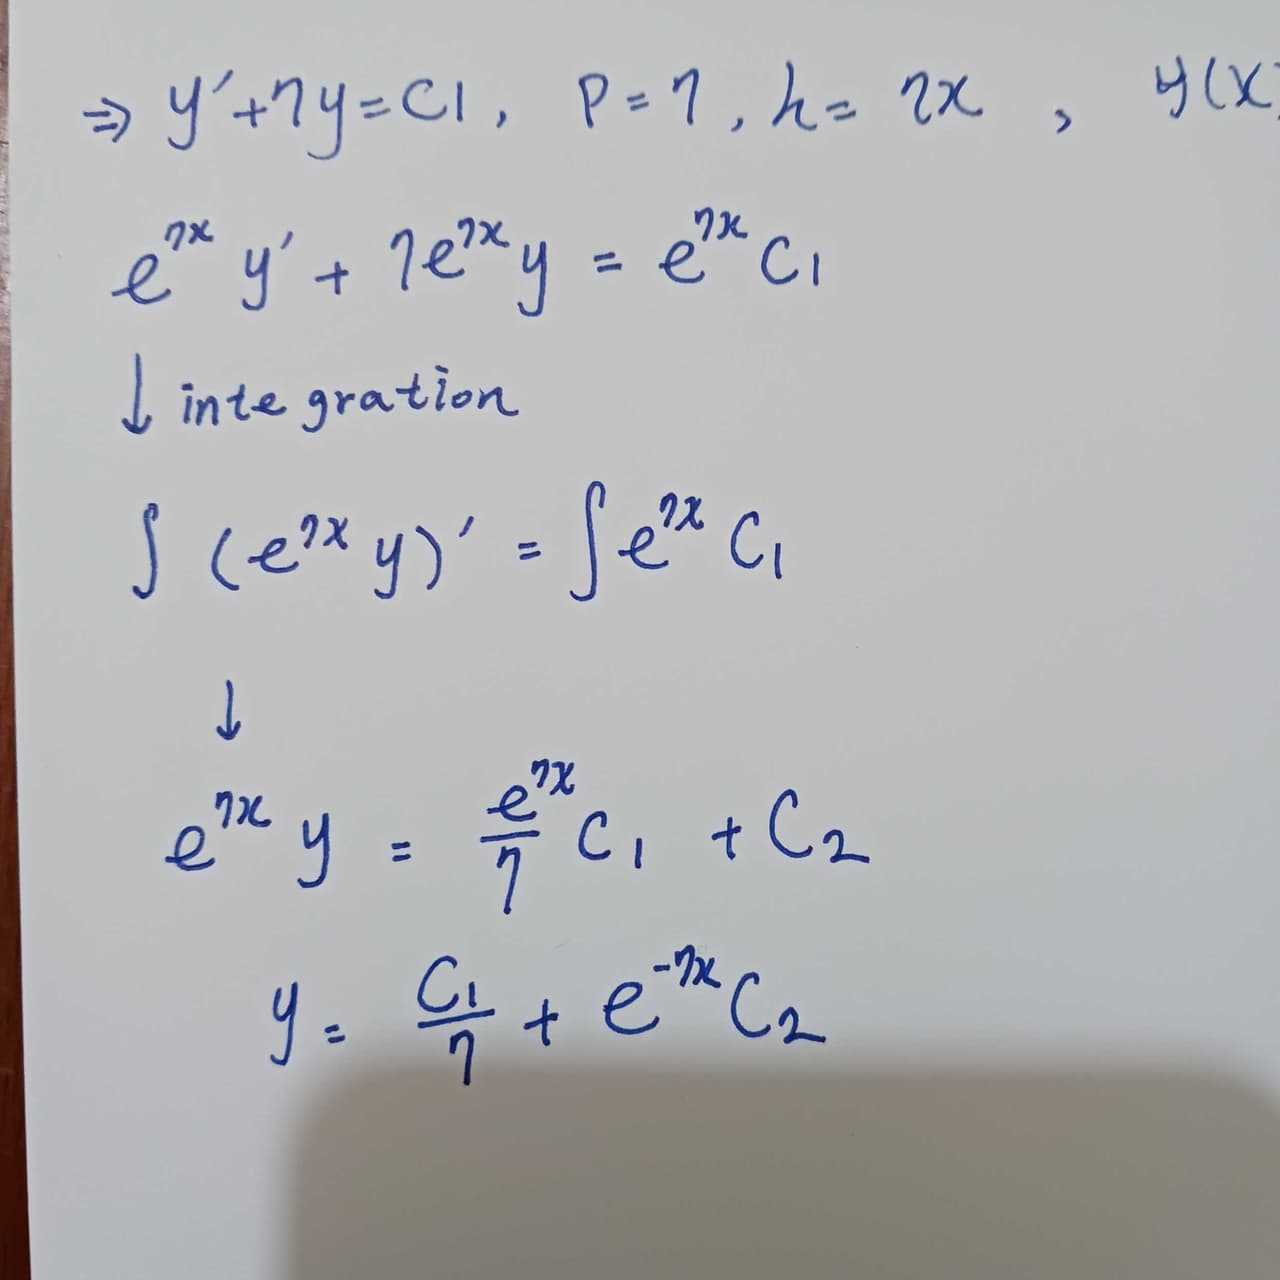 ⇒ y'+7y=C1, P=7, h=7x, y(x)
e^{7x} y' + 7e^{7x} y = e^{7x} C_1
↓ integration
∫ (e^{7x} y)' = ∫ e^{7x} C_1
↓
e^{7x} y = \frac{e^{7x}}{7} C_1 + C_2
y = \frac{C_1}{7} + e^{-7x} C_2